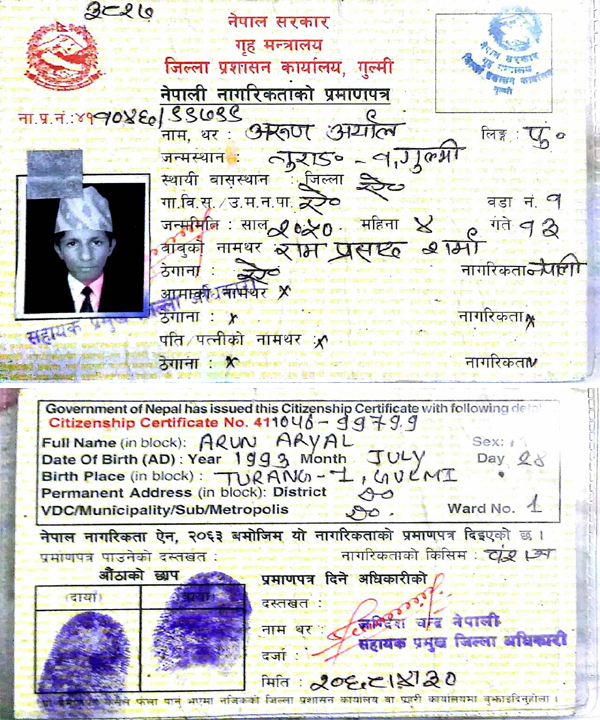 ३८२७
नेपाल सरकार
गृह मन्त्रालय
जिल्ला प्रशासन कार्यालय, गुल्मी
नेपाली नागरिकताको प्रमाणपत्र
ना.प्र.नं.: ४११०४६/९९७९९
नाम, थर : अरुण अर्याल लिङ्ग : पु॰
जन्मस्थान : तुराङ-१, गुल्मी
स्थायी बासस्थान : जिल्ला ऐ॰
गा.वि.स./उ.म.न.पा. ऐ॰ वडा नं. १
जन्ममिति : साल २०५० महिना ४ गते १३
बाबुको नामथर : राम प्रसाद शर्मा
ठेगाना : ऐ॰ नागरिकता नेपाली
आमाको नामथर x
ठेगाना : x नागरिकता x
पति /पत्नीको नामथर : x
ठेगाना : x नागरिकता x
नेपाल सरकार
गृह मन्त्रालय
जिल्ला प्रशासन कार्यालय
गुल्मी
सहायक प्रमुख जिल्ला अधिकारी
Government of Nepal has issued this Citizenship Certificate with following
Citizenship Certificate No. 411046-99799
Full Name (in block): ARUN ARYAL Sex:
Date Of Birth (AD) : Year 1993 Month JULY Day 28
Birth Place (in block) : TURANG-1, GULMI
Permanent Address (in block): District DO
VDC/Municipality/Sub/Metropolis DO. Ward No. 1
नेपाल नागरिकता ऐन, २०६३ बमोजिम यो नागरिकताको प्रमाणपत्र दिइएको छ ।
प्रमाणपत्र पाउनेको दस्तखत : नागरिकताको किसिम : वंशज
औंठाको छाप प्रमाणपत्र दिने अधिकारीको
(दायाँ) दस्तखत :
नाम थर : चन्द्र नेपाली
सहायक प्रमुख जिल्ला अधिकारी
दर्जा :
मिति :